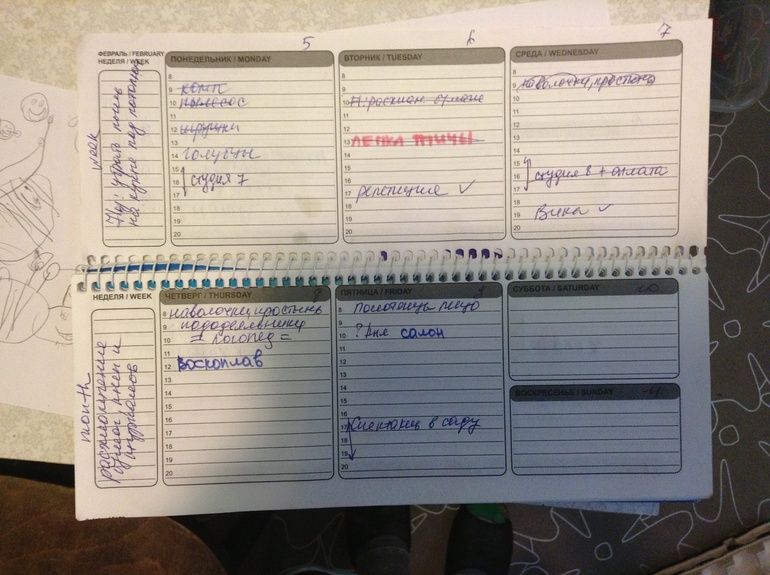 5
6
7
ФЕВРАЛЬ / FEBRUARY
НЕДЕЛЯ / WEEK
week
ПОНЕДЕЛЬНИК / MONDAY
8
9
10 пылесос
11
12
13
14 голубцы
15
16 студия 7
17
18
19
20
ВТОРНИК / TUESDAY
8
9
10
11
12
13 ЛЕПКА ПТИЦЫ
14
15
16
17 репетиция ✓
18
19
20
СРЕДА / WEDNESDAY
8
9 наволочки, простынь
10
11
12
13
14
15
16 студия 8 + оплата
17
18
19 Вика ✓
20
НЕДЕЛЯ / WEEK
month
ЧЕТВЕРГ / THURSDAY 8
8 наволочки, простынь
9 пододеяльники
10 = логопед =
11
12 воскоплав
13
14
15
16
17
18
19
20
ПЯТНИЦА / FRIDAY 9
8 полотенца лицо
9
10 ? Аня салон
11
12
13
14
15
16
17 в саду
18
19
20
СУББОТА / SATURDAY 10
ВОСКРЕСЕНЬЕ / SUNDAY 11